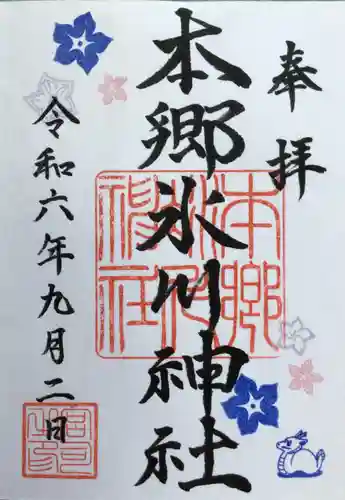 奉拝
本郷氷川神社
令和六年九月二日
本郷氷川神社